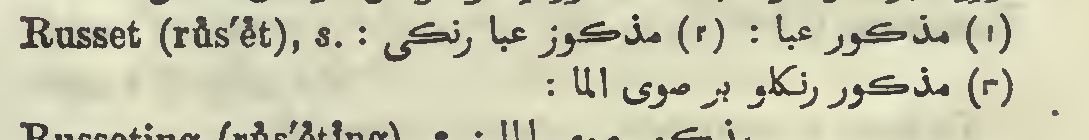 Russet (rŭs′ĕt), s. : (١) مذكور عبا : (٢) مذكوز عبا رنكى
(٣) مذكور رنكلو بر صوى الما :